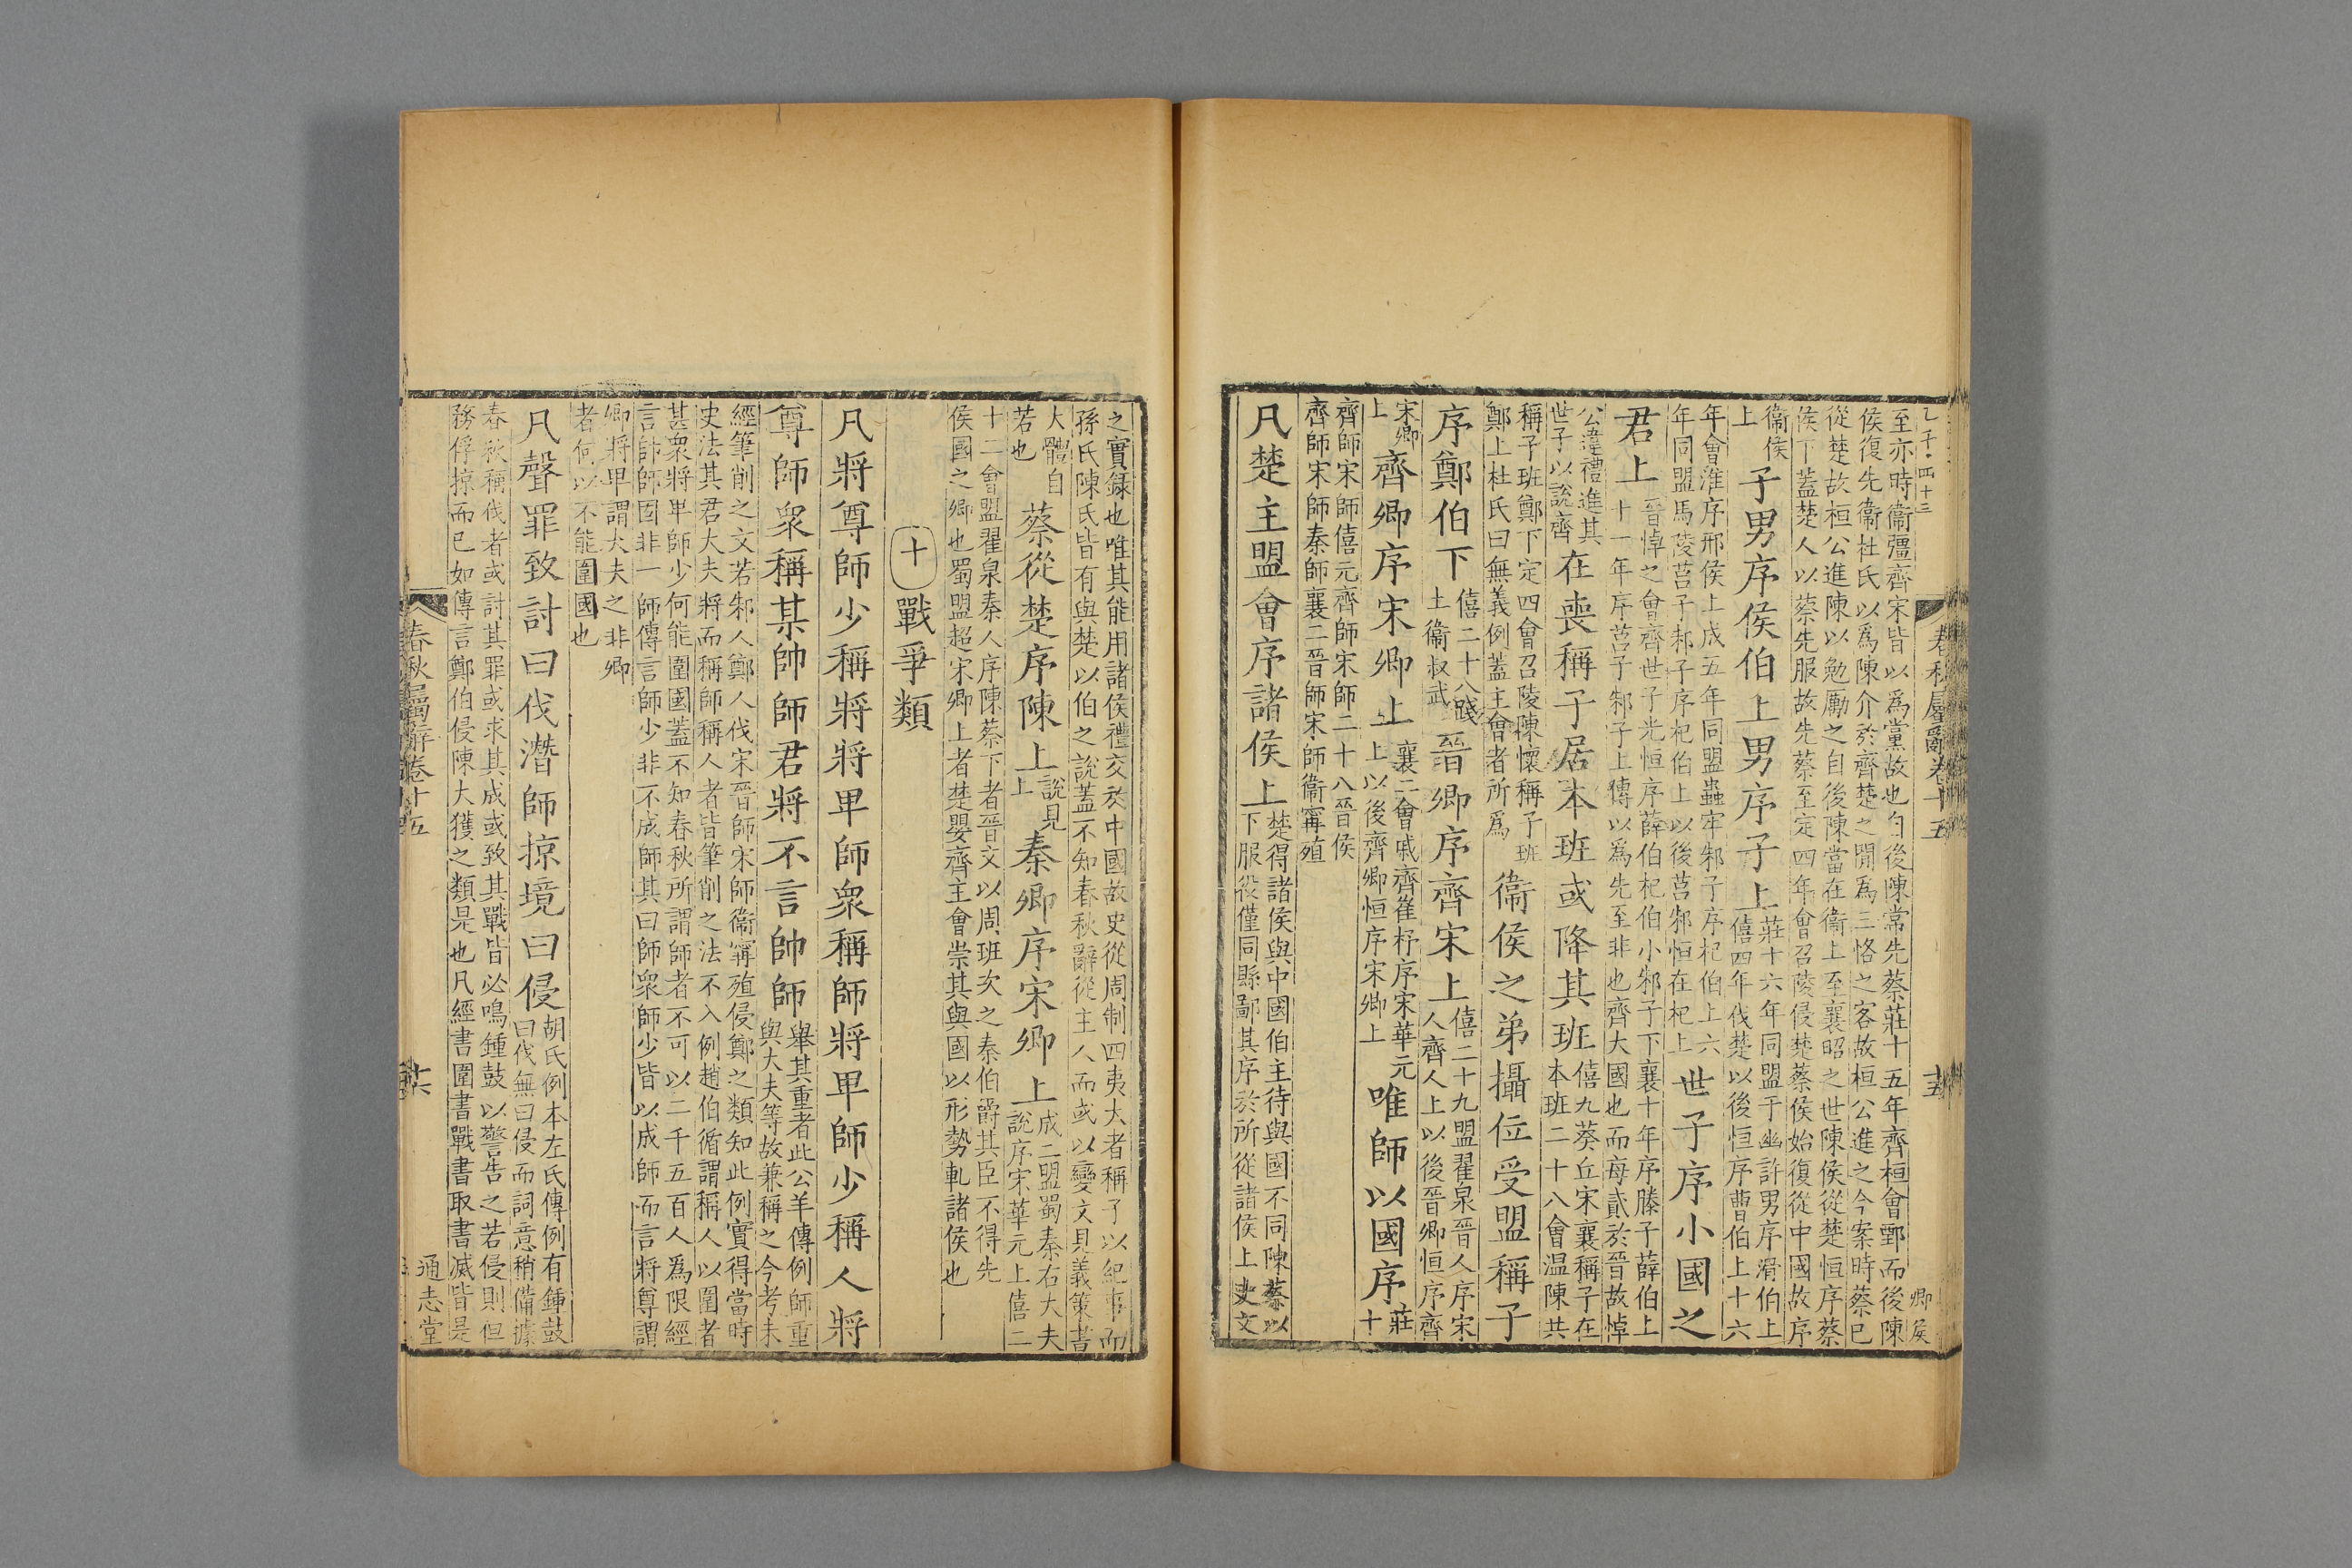 乙子·四十三
春秋屬辭卷十五
十五
至亦時衞彊齊宋皆以爲黨故也自後陳常先蔡莊十五年齊桓會鄄而後陳
侯復先衞杜氏以爲陳介於齊楚之閒爲三恪之客故桓公進之今案時蔡已
從楚故桓公進陳以勉厲之自後陳當在衞上至襄昭之世陳侯從楚恒序蔡
侯下蓋楚人以蔡先服故先蔡至定四年會召陵侵楚蔡侯始復從中國故序
衞侯
上
子男序侯伯上男序子上
莊十六年同盟于幽許男序滑伯上
僖四年伐楚以後恒序曹伯上十六
年會淮序邢侯上成五年同盟蟲牢邾子序杞伯上六
年同盟馬陵莒子邾子序杞伯上以後莒邾恒在杞上
世子序小國之
君上
晉悼之會齊世子光恒序薛伯杞伯小邾子下襄十年序滕子薛伯上
十一年序莒子邾子上傳以爲先至非也齊大國也而每貳於晉故悼
公違禮進其
世子以說齊
在喪稱子居本班或降其班
僖九葵丘宋襄稱子在
本班二十八會温陳共
稱子班鄭下定四會召陵陳懷稱子班
鄭上杜氏曰無義例蓋主會者所爲
衞侯之弟攝位受盟稱子
序鄭伯下
僖二十八踐
土衞叔武
晉卿序齊宋上
僖二十九盟翟泉晉人序宋
人齊人上以後晉卿恒序齊
宋卿
上
齊卿序宋卿上
襄二會戚齊崔杼序宋華元
上以後齊卿恒序宋卿上
唯師以國序
莊
十
齊師宋師僖元齊師宋師二十八晉侯
齊師宋師秦師襄二晉師宋師衞甯殖
凡楚主盟會序諸侯上
楚得諸侯與中國伯主待與國不同陳蔡以
下服役僅同縣鄙其序於所從諸侯上史文
之實録也唯其能用諸侯禮交於中國故史從周制四夷大者稱子以紀事而
孫氏陳氏皆有與楚以伯之說蓋不知春秋辭從主人而或以變文見義策書
大體自
若也
蔡從楚序陳上
說見
上
秦卿序宋卿上
成二盟蜀秦右大夫
說序宋華元上僖二
十二會盟翟泉秦人序陳蔡下者晉文以周班次之秦伯爵其臣不得先
侯國之卿也蜀盟超宋卿上者楚嬰齊主會崇其與國以形勢軋諸侯也
十 戰爭類
凡將尊師少稱將將卑師衆稱師將卑師少稱人將
尊師衆稱某帥師君將不言帥師
舉其重者此公羊傳例師重
與大夫等故兼稱之今考未
經筆削之文若邾人鄭人伐宋晉師宋師衞甯殖侵鄭之類知此例實得當時
史法其君大夫將而稱師稱人者皆筆削之法不入例趙伯循謂稱人以圍者
甚衆將卑師少何能圍國蓋不知春秋所謂師者不可以二千五百人爲限經
言帥師固非一師傳言師少非不成師其曰師衆師少皆以成師而言將尊謂
卿將卑謂大夫之非卿
者何以不能圍國也
凡聲罪致討曰伐潛師掠境曰侵
胡氏例本左氏傳例有鍾鼓
曰伐無曰侵而詞意稍備據
春秋稱伐者或討其罪或求其成或致其戰皆必鳴鍾鼓以警告之若侵則但
務俘掠而已如傳言鄭伯侵陳大獲之類是也凡經書圍書戰書取書滅皆是
春秋屬辭卷十五
十六
通志堂